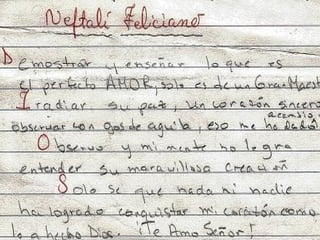 Neftalí Feliciano
Demostrar y enseñar lo que es
El perfecto AMOR, solo es de un Gran Maest
Iradiar su paz, un corazón sincero
acemsig
observar con ojos de aguila, eso me ha dado!
Observo y mi mente no logra
entender su maravillosa creación
Solo se que nada ni nadie
ha logrado conquistar mi corazón como
lo a hecho Dios. ¡Te Amo Señor!